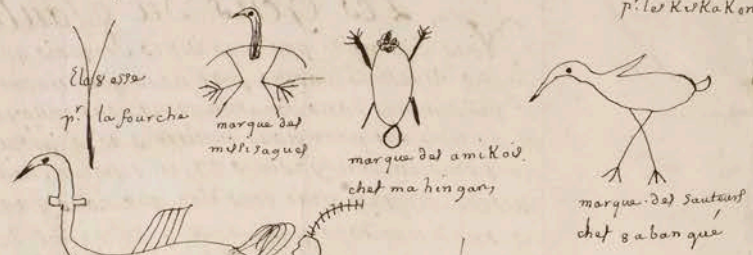 pr. les KisKaKon
Elaȣesse
pr. la fourche
marque des
missisagues
marque des amiKois.
chef mahingan,
marque des Sauteurs
chef ȣabangué